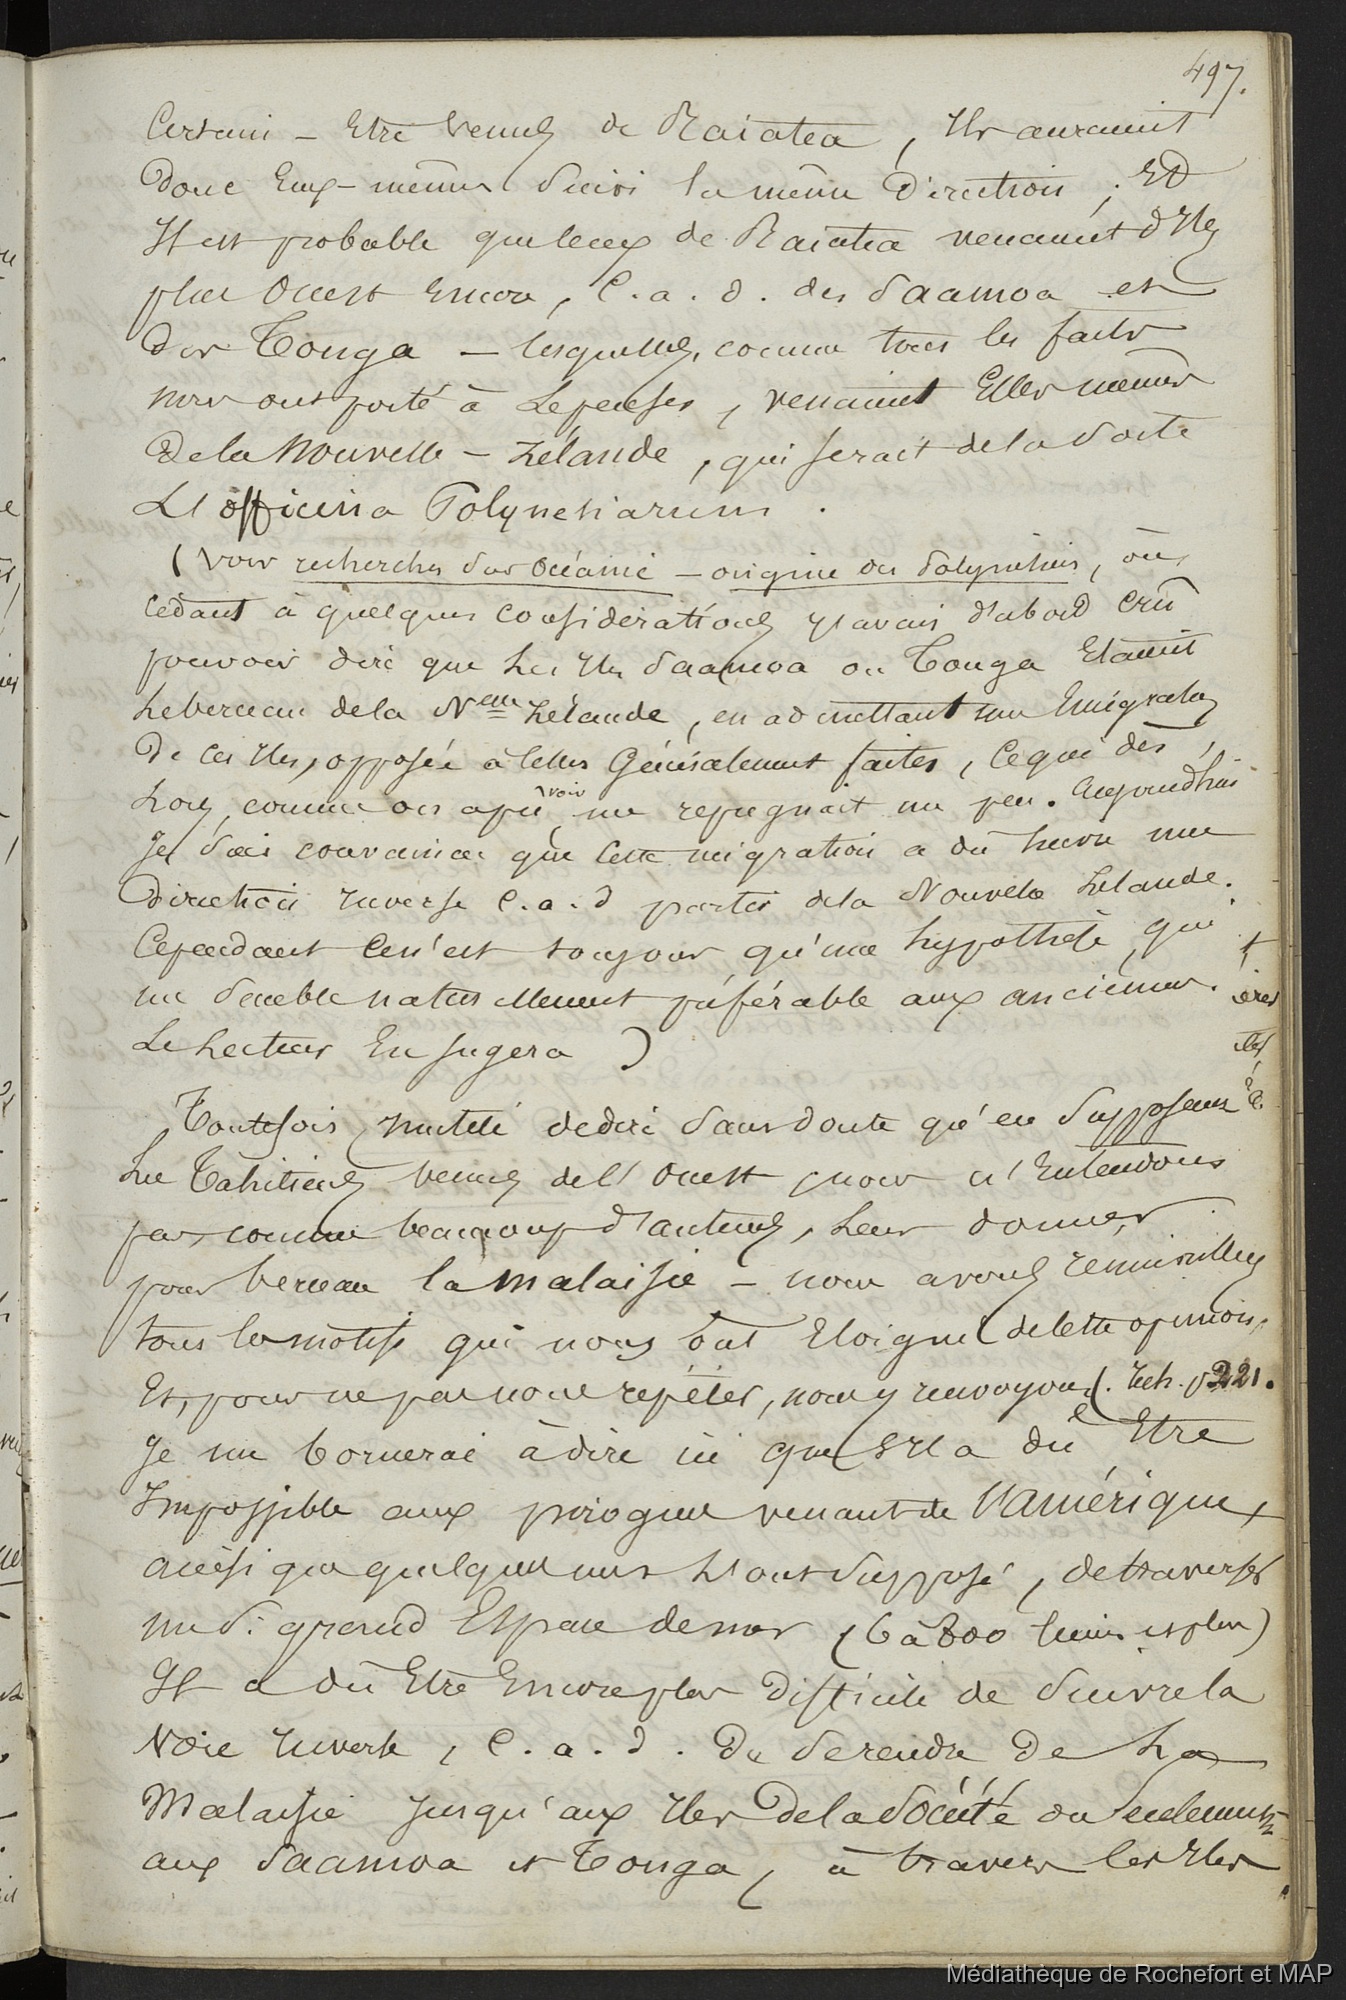 497.
Certain – Etre venus de Raiatea, Ils auraient
Donc Eux-mêmes Suivi la même Direction ; Et
Il est probable que ceux de Raiatea venaient d'Iles
plus Ouest Encore, C. a. d. des Saamoa et
Des Tonga – lesquelles, comme tous les faits
nous ont porté à Le penser, venaient Elles mêmes
De la Nouvelle-Zélande, qui serait de la Sorte
L'officina Polynesiarum.
(Voir recherches Sur Océanie – origine des Polynésiens, où,
cédant à quelques considérations j'avais d'abord crû
pouvoir dire que Les Iles Saamoa ou Tonga Etaient
Le berceau de la Nelle Zélande, en admettant une Emigration
De ces Iles, opposée à celles Généralement faites, Ce qui dès
Lors, comme on a pu voir, me repugnait un peu. Aujourdhui
Je Suis convaincu que Cette migration a dû Suivre une
Direction Inverse C. a. d partir de la Nouvelle Zélande.
Cependant Ce n'est toujours qu'une hypothèse, qui
me Semble naturellement préférable aux anciennes.
Le Lecteur En jugera )
Toutefois Inutile de dire Sans doute qu'en Supposant
Les Tahitiens Venus de l'Ouest, nous n'Entendons
pas, comme beaucoup d'auteurs, Leur donner
pour berceau la Malaisie – nous avons
tous les motifs qui nous ont Eloigné de cette opinion,
Et, pour ne pas nous repéter, nous y renvoyons (. Rech. p 221.
Je me bornerai à dire ici que S'Il a dû Etre
Impossible aux pirogues venant de l'Amérique,
ainsi que quelques uns L'ont Supposé, de traverser
un Si grand Espace de mer (6 à 800 lieues et plus)
Il a dû Etre Encore plus Difficile de Suivre la
Voie Inverse, C. a. d. De Se rendre De La
Malaisie Jusqu'aux Iles De la Société ou Seulement
aux Saamoa et Tonga, à travers les Iles
Médiathèque de Rochefort et MAP